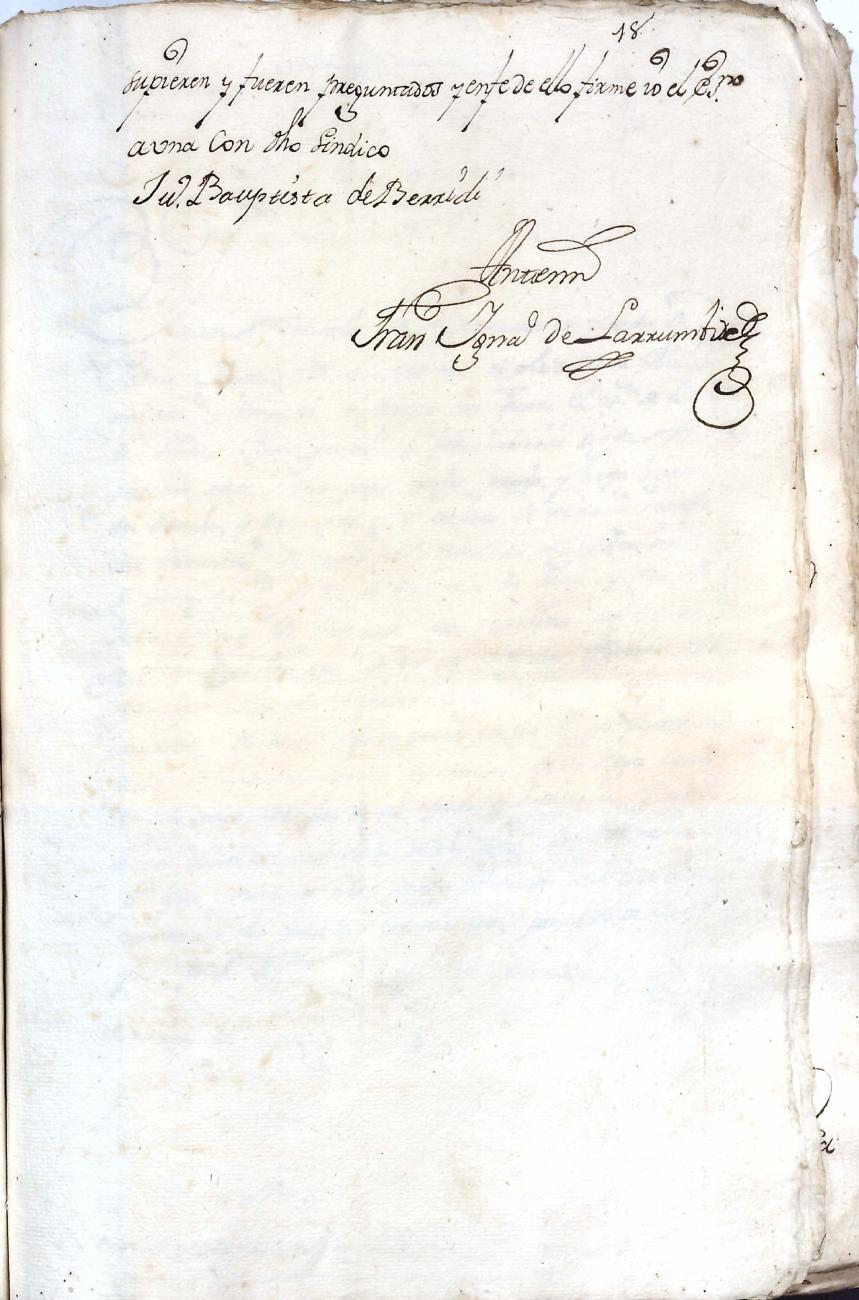 18
supieren y fueren preguntados y enfe de ello firme io el Essno
a una Con dho sindico
Ju. Bauptista de Berridi
Antemi
Fran Igna de Larrumbide